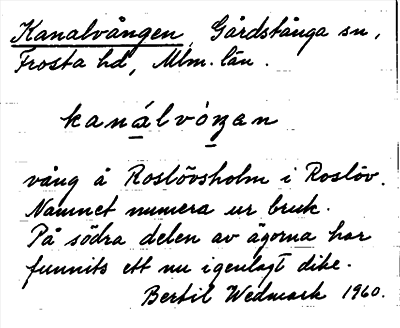 Kanalvången, Gårdstånga sn,
Frosta hd, Mlm. län.
kanálvóŋan
vång å Roslövsholm i Roslöv.
Namnet numera ur bruk.
På södra delen av ägorna har
funnits ett nu igenlagt dike.
Bertil Wedmark 1960.